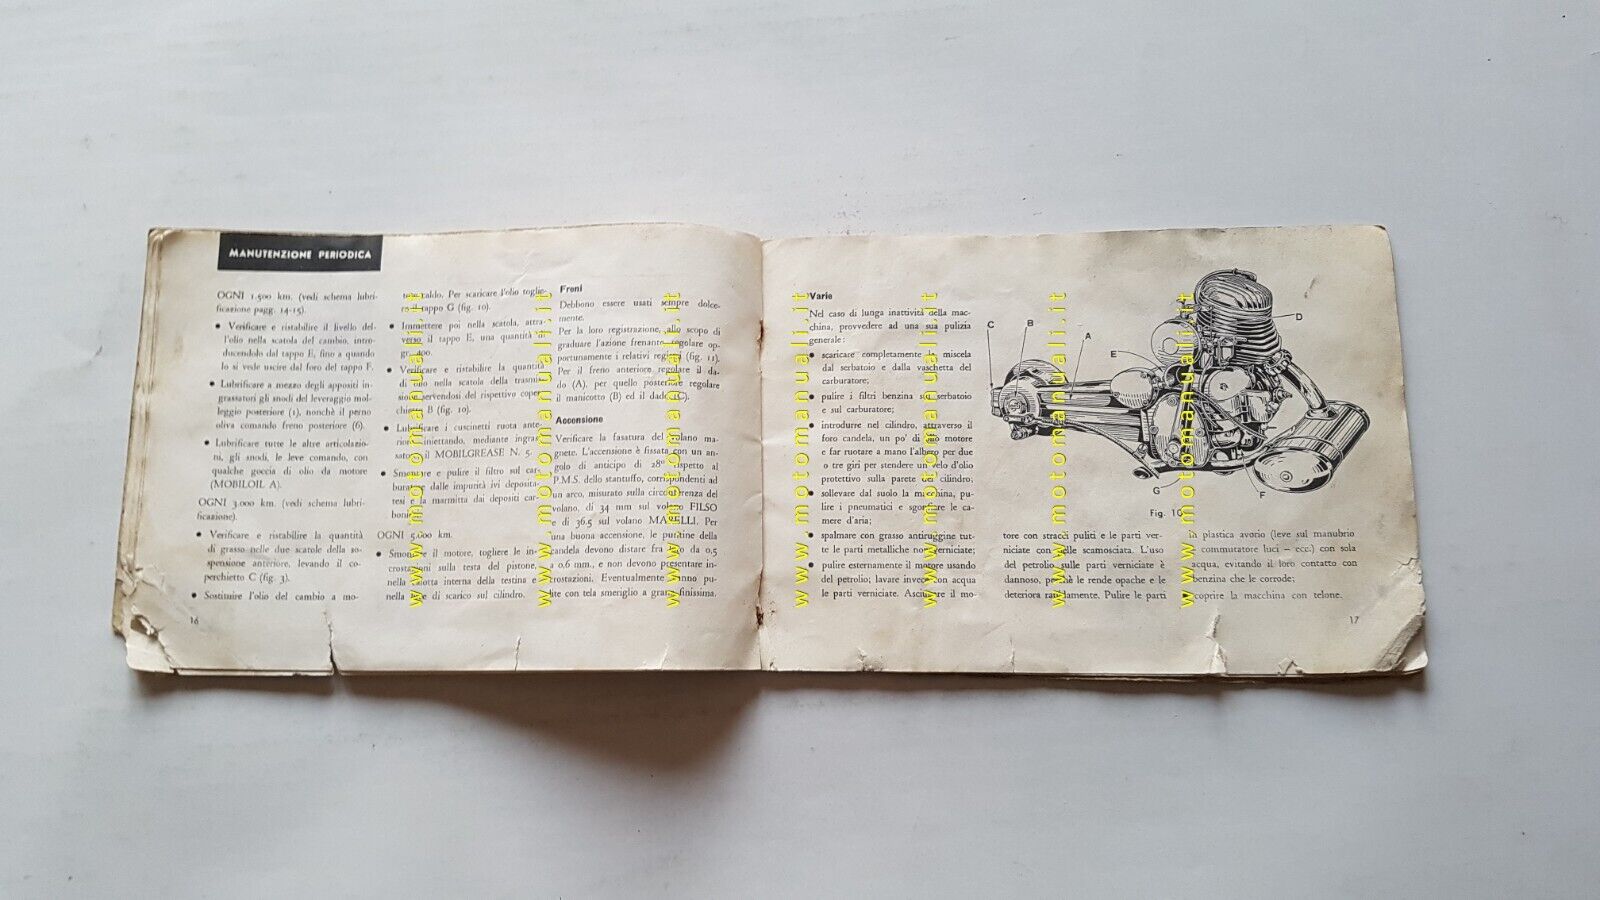 MANUTENZIONE PERIODICA
OGNI 1.500 km. (vedi schema lubri-
ficazione pagg. 14-15).
• Verificare e ristabilire il livello del-
l'olio nella scatola del cambio, intro-
ducendolo dal tappo E, fino a quando
lo si vede uscire dal foro del tappo F.
• Lubrificare a mezzo degli appositi in-
grassatori gli snodi del leveraggio mol-
leggio posteriore (1), nonchè il perno
oliva comando freno posteriore (6).
• Lubrificare tutte le altre articolazio-
ni, gli snodi, le leve comando, con
qualche goccia di olio da motore
(MOBILOIL A).
OGNI 3.000 km. (vedi schema lubri-
ficazione).
• Verificare e ristabilire la quantità
di grasso nelle due scatole della so-
spensione anteriore, levando il co-
perchietto C (fig. 3).
• Sostituire l'olio del cambio a mo-
16
tore caldo. Per scaricare l'olio toglie-
re il tappo G (fig. 10).
• Immettere poi nella scatola, attra-
verso il tappo E, una quantità di
gr. 400.
• Verificare e ristabilire la quantità
di olio nella scatola della trasmis-
sione servendosi del rispettivo coper-
chietto B (fig. 10).
• Lubrificare i cuscinetti ruota ante-
riore iniettando, mediante ingras-
satore, il MOBILGREASE N. 5.
• Smontare e pulire il filtro sul car-
buratore dalle impurità ivi deposita-
tesi e la marmitta dai depositi car-
boniosi.
OGNI 5.000 km.
• Smontare il motore, togliere le in-
crostazioni sulla testa del pistone,
nella calotta interna della testina e
nella luce di scarico sul cilindro.
Freni
Debbono essere usati sempre dolce-
mente.
Per la loro registrazione, allo scopo di
graduare l'azione frenante regolare op-
portunamente i relativi registri (fig. 11).
Per il freno anteriore regolare il da-
do (A), per quello posteriore regolare
il manicotto (B) ed il dado (C).
Accensione
Verificare la fasatura del volano ma-
gnete. L'accensione è fissata con un an-
golo di anticipo di 28° rispetto al
P.M.S. dello stantuffo, corrispondenti ad
un arco, misurato sulla circonferenza del
volano, di 34 mm sul volano FILSO
e di 36.5 sul volano MARELLI. Per
una buona accensione, le puntine della
candela devono distare fra loro da 0,5
a 0,6 mm., e non devono presentare in-
crostazioni. Eventualmente vanno pu-
lite con tela smeriglio a grana finissima.
Varie
Nel caso di lunga inattività della mac-
china, provvedere ad una sua pulizia
generale:
• scaricare completamente la miscela
dal serbatoio e dalla vaschetta del
carburatore;
• pulire i filtri benzina sul serbatoio
e sul carburatore;
• introdurre nel cilindro, attraverso il
foro candela, un po' di olio motore
e far ruotare a mano l'albero per due
o tre giri per stendere un velo d'olio
protettivo sulla parete del cilindro;
• sollevare dal suolo la macchina, pu-
lire i pneumatici e sgonfiare le ca-
mere d'aria;
• spalmare con grasso antiruggine tut-
te le parti metalliche non verniciate;
• pulire esternamente il motore usando
del petrolio; lavare invece con acqua
le parti verniciate. Asciugare il mo-
C
B
A
E
D
G
F
Fig. 10
tore con stracci puliti e le parti ver-
niciate con pelle scamosciata. L'uso
del petrolio sulle parti verniciate è
dannoso, perchè le rende opache e le
deteriora rapidamente. Pulire le parti
in plastica avorio (leve sul manubrio
commutatore luci - ecc.) con sola
acqua, evitando il loro contatto con
benzina che le corrode;
• coprire la macchina con telone.
17
www.motomanuali.it
www.motomanuali.it
www.motomanuali.it
www.motomanuali.it
www.motomanuali.it
www.motomanuali.it
www.motomanuali.it